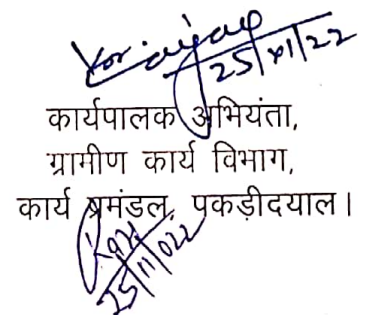 25/11/22
कार्यपालक अभियंता,
ग्रामीण कार्य विभाग,
कार्य प्रमंडल, पकड़ीदयाल।
25/11/022